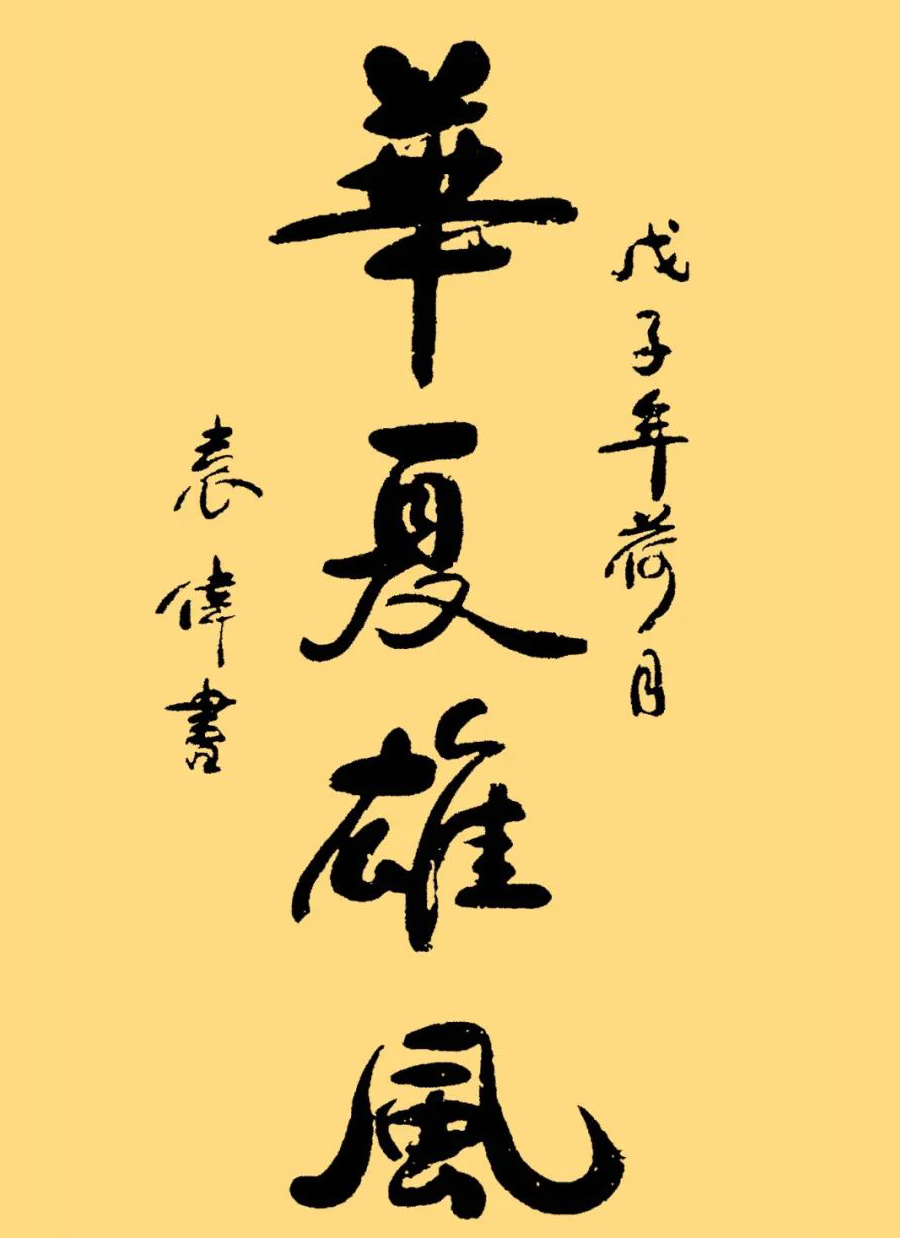 戊子年荷月
華夏雄風
袁偉書